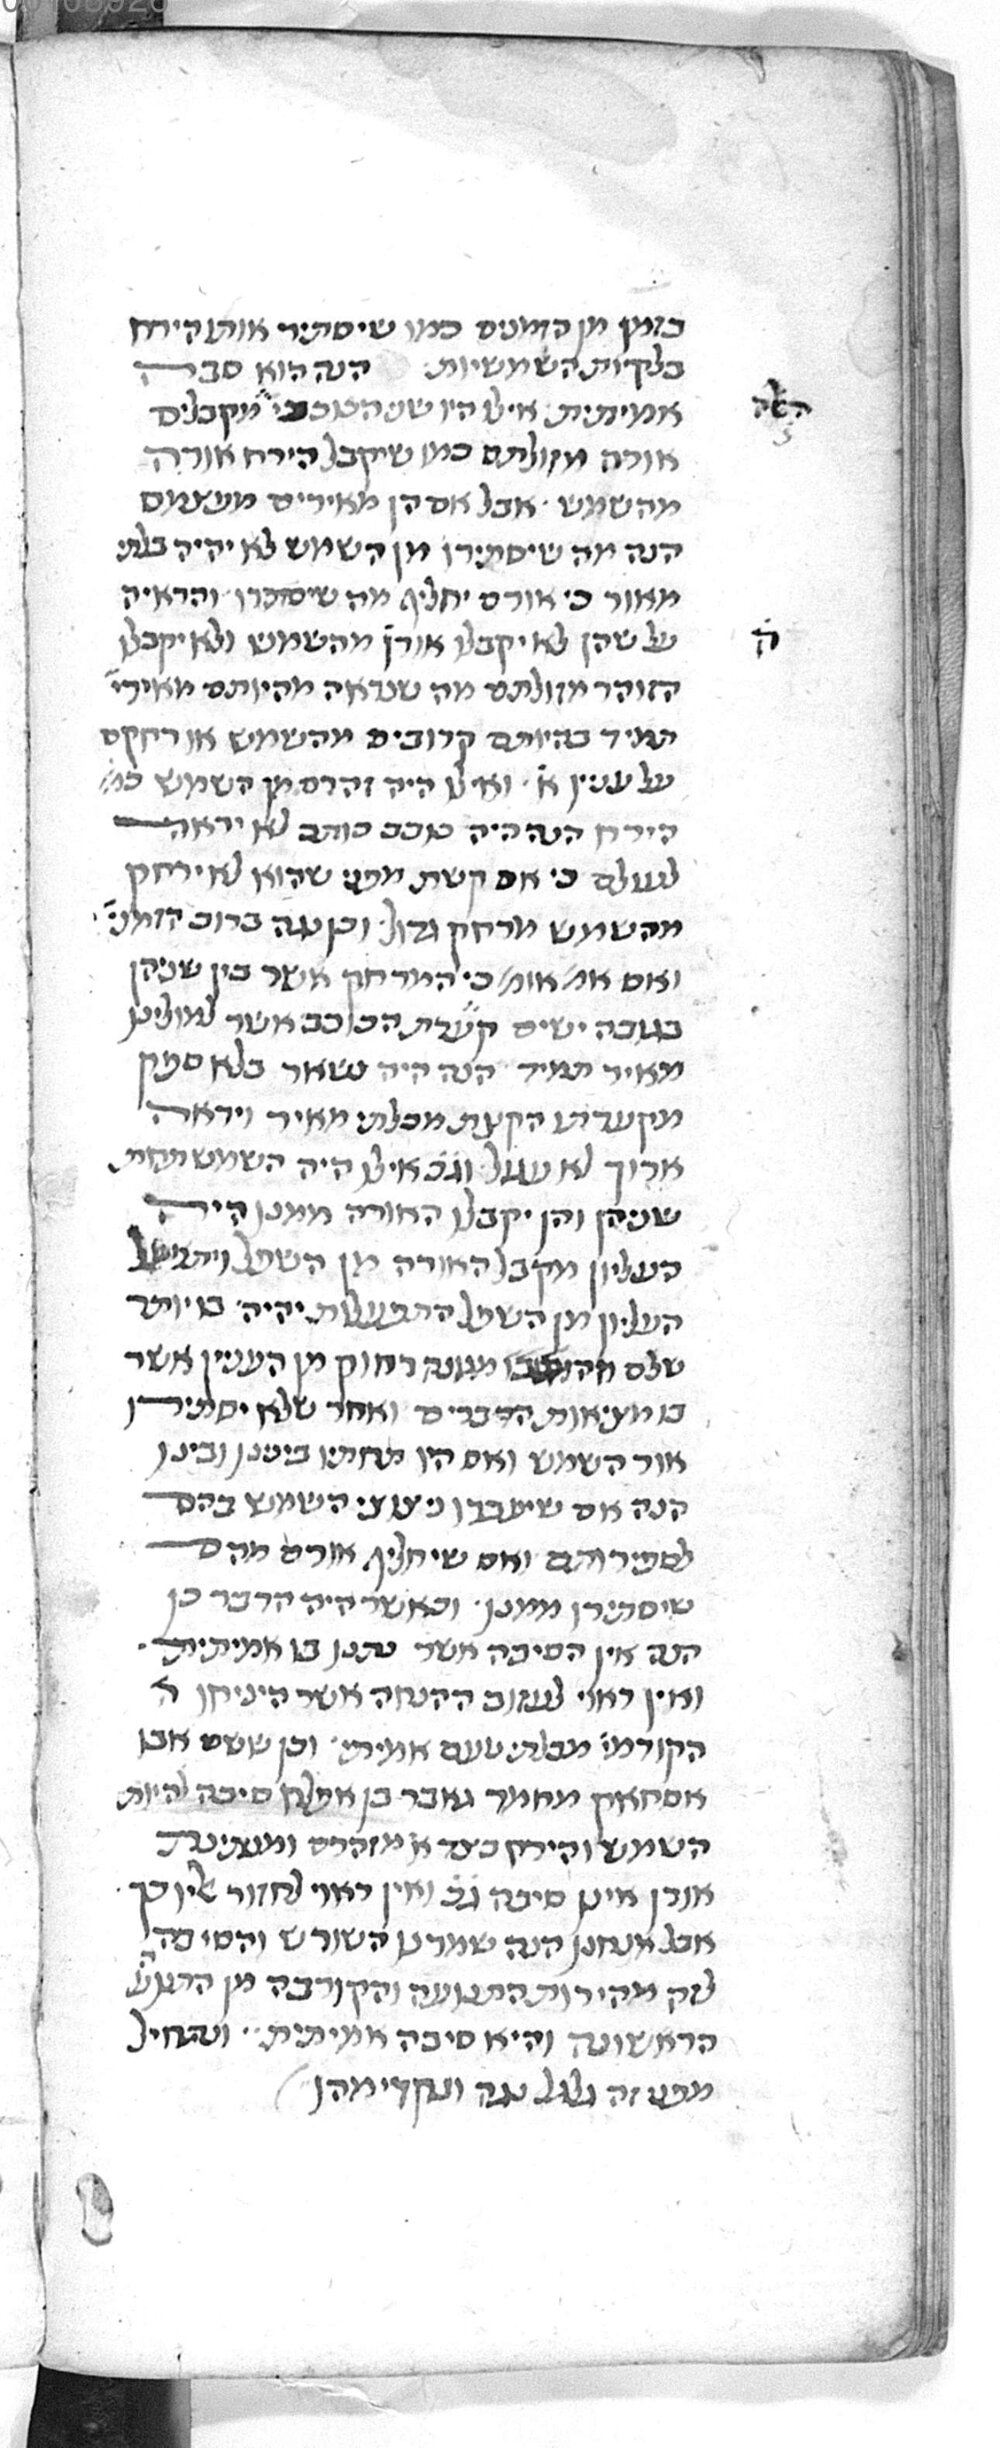 בזמן מן הזמנים כמו שיסתיר אותו הירח
בלקות השמשיות הנה הוא סבה
אמיתית אילו היו שני הכוכבי' מקבלים
אורה מזולתם כמו שיקבל הירח אורה
מהשמש אבל אם הן מאירים מעצמם
הנה מה שיסתירו מן השמש לא יהיה בלתי
מאור כי אורם יחליף מה שיסתירו והראיה
על שהן לא יקבלו אורן מהשמש ולא יקבלו
ה
הזוהר מזולתם מה שנראה מהיותם מאירי'
תמיד בהיותם קרובים מהשמש או רחקם
על ענין א' ואילו היה זהרם מן השמש כמו
הירח הנה היה כוכב כותב לא יראה
לעולם כי אם קשת מפני שהוא לא ירחק
מהשמש מרחק גדול וכן נגה ברוב הזמני'
ואם אמ' אומ' כי המרחק אשר בין שניהן
בגובה ישים קערת הכוכב אשר למולינו
מאיר תמיד הנה היה נשאר בלא ספק
מקערתו הקצת מבלתי מאיר ויראה
ארוך לא עגול וגם אילו היה השמש תחת
שניהן והן יקבלו האורה ממנו היה
העליון מקבל האורה מן השפל
העליון מן השפל התפעלות יהיה בו יותר
שלם מגונה רחוק מן הענין אשר
בו מציאות הדברים ואחר שלא יסתירו
אור השמש ואם היו תחתיו בינינו ובינו
הנה אם שיעברו ניצוצי השמש בהם
לספירותם ואם שיחליף אורם מה
שיסתירו ממנו וכאשר היה הדבר כן
הנה אין הסיבה אשר נתנו בו אמיתית
ואין ראוי לעזוב ההנחה אשר הניחו
הקודמי' מבלתי טעם אמיתי וכן ששם אבו
אסחאק מחמד גאבר בן אפלח סיבה להיות
השמש והירח בצד א' מזהרם ומנצינות
אורן אינו סיבה גם ואין ראוי לחזור אליו כך
אבל אנחנו הנה שמרנו השורש והסיבה
לזה מהירות התנועה והקורבה מן התנוע'
הראשונה והיא סיבה אמיתית ונתחיל
מפני זה גלגל נגה ונקדימהו